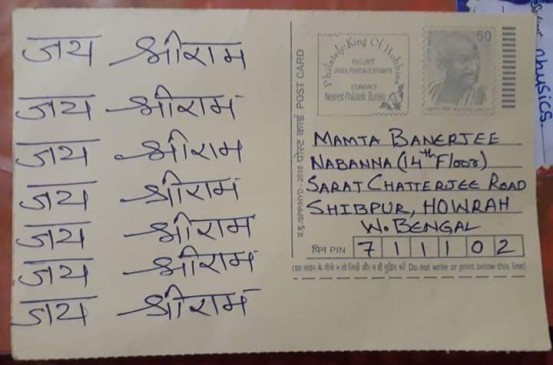 जय श्रीराम
जय श्रीराम
जय श्रीराम
जय श्रीराम
जय श्रीराम
जय श्रीराम
जय श्रीराम
पोस्ट कार्ड POST CARD
Philately-King Of Hobbies
COLLECT
INDIA POSTAGE STAMPS
CONTACT
Nearest Philatelic Bureau
50
MAMTA BANERJEE
NABANNA (14th FLOOR)
SARAT CHATTERJEE ROAD
SHIBPUR, HOWRAH
W. BENGAL
पिन PIN 711102
(इस लाइन के नीचे न तो लिखें और न ही मुद्रित करें Do not write or print below this line)
physics.